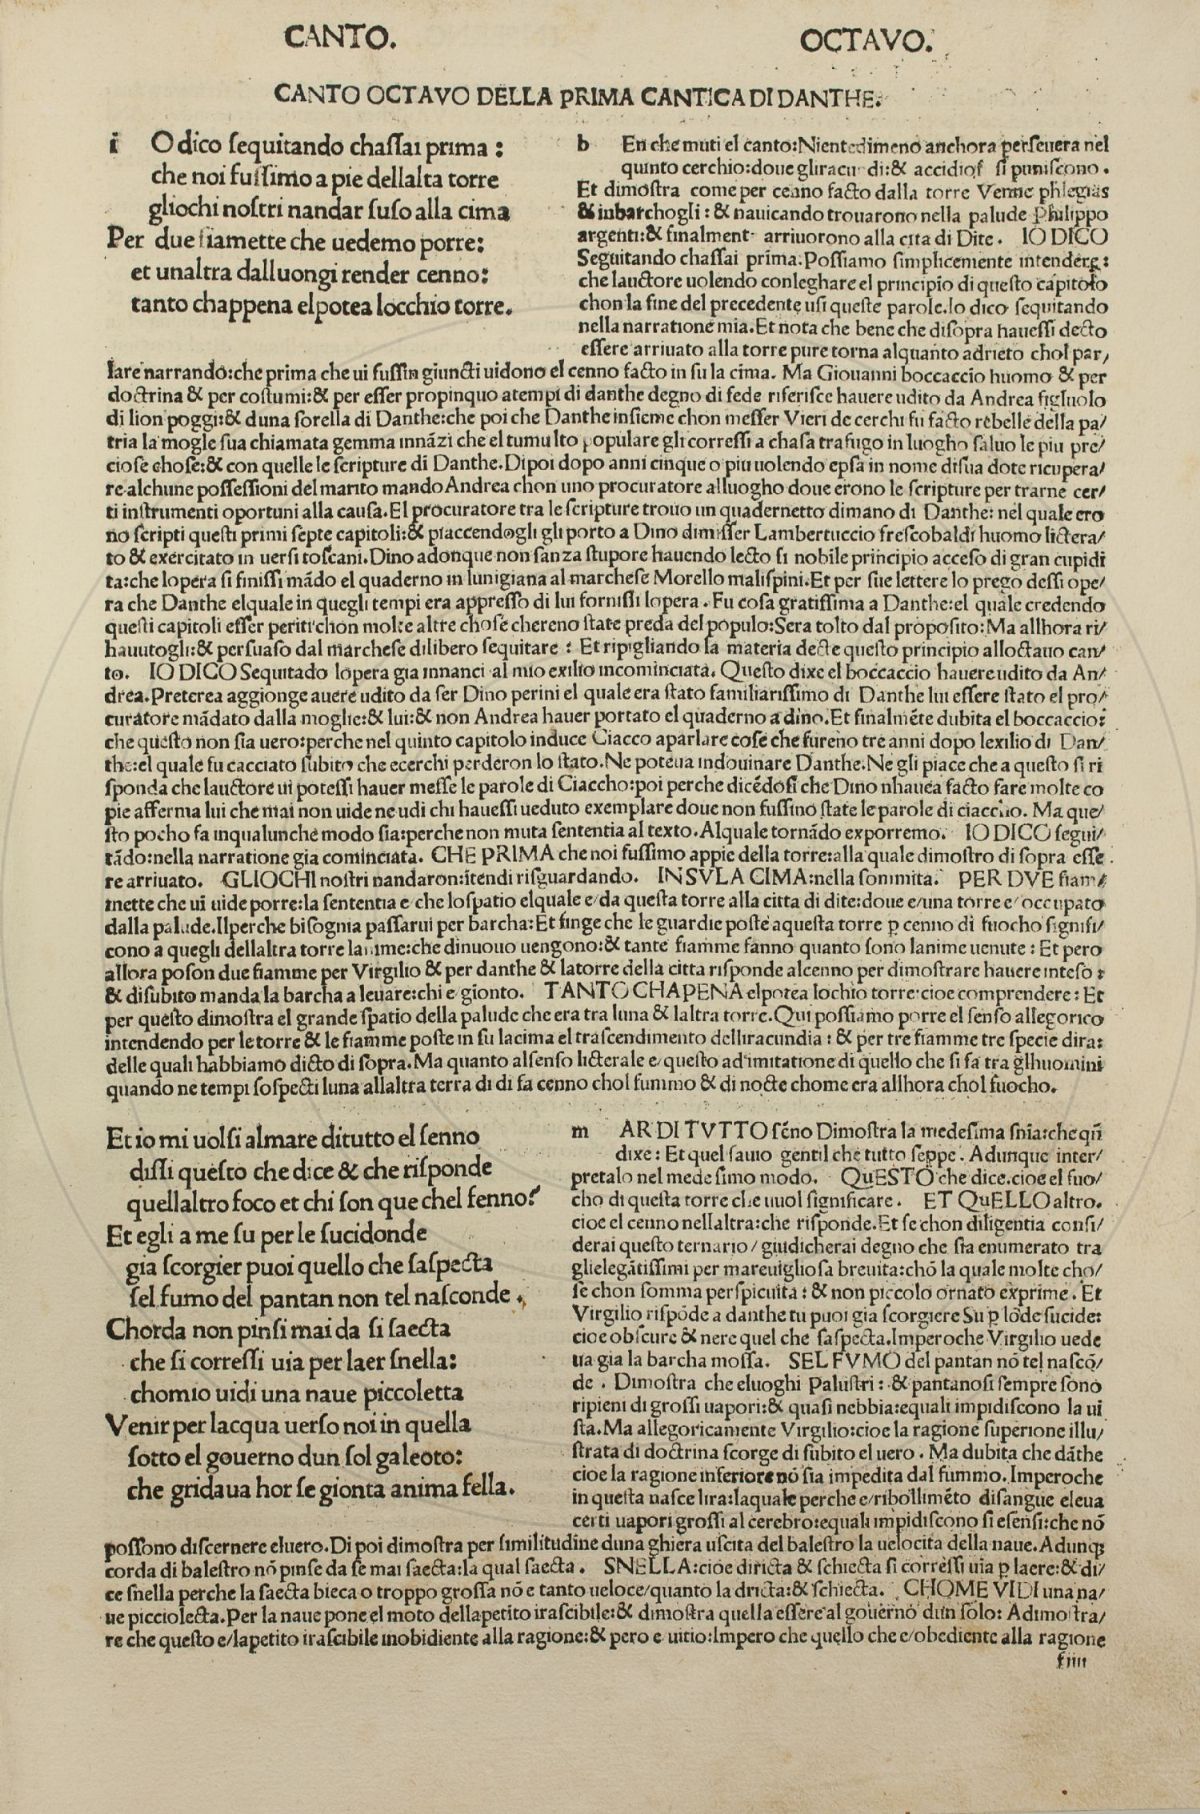 CANTO. OCTAVO.
CANTO OCTAVO DELLA PRIMA CANTICA DI DANTHE.
i O dico sequitando chassai prima :
che noi fussimo a pie dellalta torre
gliochi nostri nandar suso alla cima
Per due fiamette che uedemo porre:
et unaltra dalluongi render cenno:
tanto chappena elpotea locchio torre.
b En che muti el canto:Nientedimeno anchora perseuera nel
quinto cerchio:doue gliracundi:& accidiosi si puniscono.
Et dimostra come per cenno facto dalla torre Venne phlegias
& inbarchogli:& nauicando trouarono nella palude Philippo
argenti:& finalment arriuorono alla cita di Dite. IO DICO
Seguitando chassai prima:Possiamo simplicemente intendere:
che lauctore uolendo conleghare el principio di questo capitolo
chon la fine del precedente usi queste parole.Io dico sequitando
nella narratione mia.Et nota che bene che disopra hauessi decto
essere arriuato alla torre pure torna alquanto adrieto chol par/
lare narrando:che prima che ui fussin giuncti uidono el cenno facto in su la cima. Ma Giouanni boccaccio huomo & per
doctrina & per costumi:& per esser propinquo atempi di danthe degno di fede riferisce hauere udito da Andrea figluolo
di lion poggi:& duna sorella di Danthe:che poi che Danthe insieme chon messer Vieri de cerchi fu facto rebelle della pa/
tria la mogle sua chiamata gemma innāzi che el tumulto populare gli corressi a chasa trafugo in luogho saluo le piu pre/
ciose chose:& con quelle le scripture di Danthe.Dipoi dopo anni cinque o piu uolendo epsa in nome disua dote ricupera/
re alchune possessioni del marito mando Andrea chon uno procuratore alluogho doue erono le scripture per trarne cer/
ti instrumenti oportuni alla causa.El procuratore tra le scripture trouo un quadernetto dimano di Danthe: nel quale ero
no scripti questi primi septe capitoli:& piaccendogli gli porto a Dino dimisser Lambertuccio frescobaldi huomo lictera/
to & exercitato in uersi toscani.Dino adonque non sanza stupore hauendo lecto si nobile principio acceso di gran cupidi
ta:che lopera si finissi mādo el quaderno in lunigiana al marchese Morello malispini.Et per sue lettere lo prego dessi ope/
ra che Danthe elquale in quegli tempi era appresso di lui fornissi lopera. Fu cosa gratissima a Danthe:el quale credendo
questi capitoli esser periti chon molte altre chose chereno state preda del populo:Sera tolto dal proposito:Ma allhora ri/
hauutogli:& persuaso dal marchese dilibero sequitare : Et ripigliando la materia decte questo principio alloctauo can/
to. IO DICO Sequitado lopera gia innanci al mio exilio incominciata. Questo dixe el boccaccio hauere udito da An/
drea.Preterea aggionge auere udito da ser Dino perini el quale era stato familiarissimo di Danthe lui essere stato el pro/
curatore mādato dalla moglie:& lui:& non Andrea hauer portato el quaderno a dino.Et finalmēte dubita el boccaccio:
che questo non sia uero:perche nel quinto capitolo induce Ciacco aparlare cose che fureno tre anni dopo lexilio di Dan/
the:el quale fu cacciato subito che ecerchi perderon lo stato.Ne poteua indouinare Danthe.Ne gli piace che a questo si ri
sponda che lauctore ui potessi hauer messe le parole di Ciaccho:poi perche dicēdosi che Dino nhauea facto fare molte co
pie afferma lui che mai non uide ne udi chi hauessi ueduto exemplare doue non fussino state le parole di ciaccho. Ma que/
sto pocho fa inqualunche modo sia:perche non muta sententia al texto.Alquale tornādo exporremo. IO DICO segui/
tādo:nella narratione gia cominciata. CHE PRIMA che noi fussimo appie della torre:alla quale dimostro di sopra esse
re arriuato. GLIOCHI nostri nandaron:ītendi risguardando. IN SVLA CIMA:nella sommita. PER DVE fiam/
mette che ui uide porre:la sententia e/ che lo spatio elquale e/da questa torre alla citta di dite:doue e/una torre e/ occupato
dalla palude.Ilperche bisognia passarui per barcha:Et finge che le guardie poste aquesta torre p cenno di fuocho signifi/
cono a quegli dellaltra torre lanime:che dinuouo uengono:& tante fiamme fanno quanto sono lanime uenute : Et pero
allora poson due fiamme per Virgilio & per danthe & latorre della citta risponde alcenno per dimostrare hauere inteso :
& disubito manda la barcha a leuare:chi e gionto. TANTO CHAPENA elpotea lochio torre:cioe comprendere: Et
per questo dimostra el grande spatio della palude che era tra luna & laltra torre.Qui possiamo porre el senso allegorico
intendendo per le torre & le fiamme poste in su lacima el trascendimento delliracundia : & per tre fiamme tre specie dira:
delle quali habbiamo dicto di sopra.Ma quanto alsenso licterale e/questo ad imitatione di quello che si fa tra glhuomini
quando ne tempi sospecti luna allaltra terra di di fa cenno chol fummo & di nocte chome era allhora chol fuocho.
Et io mi uolsi almare ditutto el senno
dissi questo che dice & che risponde
quellaltro foco et chi son que chel fenno?
Et egli a me su per le sucidonde
gia scorgier puoi quello che saspecta
sel fumo del pantan non tel nasconde.
Chorda non pinsi mai da si saecta
che si corressi uia per laer snella:
chomio uidi una naue piccoletta
Venir per lacqua uerso noi in quella
sotto el gouerno dun sol galeoto:
che gridaua hor se gionta anima fella.
m AR DI TVTTO sēno Dimostra la medesima snīa:che qñ
dixe: Et quel sauio gentil che tutto seppe. Adunque inter/
pretalo nel medesimo modo. QuESTO che dice.cioe el fuo/
cho di questa torre che uuol significare. ET QuELLO altro.
cioe el cenno nellaltra:che risponde.Et se chon diligentia consi/
derai questo ternario/ giudicherai degno che sia enumerato tra
glielegātissimi per marauigliosa breuita:chō la quale molte cho/
se chon somma perspicuita : & non piccolo ornato exprime. Et
Virgilio rispōde a danthe tu puoi gia scorgiere Su p lōde sucide:
cioe obscure & nere quel che saspecta.Imperoche Virgilio uede
ua gia la barcha mossa. SEL FVMO del pantan nō tel nascō/
de. Dimostra che eluoghi Palustri : & pantanosi sempre sono
ripieni di grossi uapori:& quasi nebbia:equali impidiscono la ui
sta.Ma allegoricamente Virgilio:cioe la ragione superiore illu/
strata di doctrina scorge di subito el uero. Ma dubita che dāthe
cioe la ragione inferiore nō sia impedita dal fummo.Imperoche
in questa nasce lira:laquale perche e/ribollimēto disangue eleua
certi uapori grossi al cerebro:equali impidiscono si esensi:che nō
possono discernere eluero.Di poi dimostra per similitudine duna ghiera uscita del balestro la uelocita della naue.Adunq
corda di balestro nō pinse da se mai saecta:la qual saecta. SNELLA:cioe diricta & schiecta si corressi uia p laere:& di/
ce snella perche la saecta bieca o troppo grossa nō e tanto ueloce/quanto la dricta:& schiecta. CHOME VIDI una na/
ue picciolecta.Per la naue pone el moto dellapetito irascibile:& dimostra quella essere al gouerno dun solo: A dimostra/
re che questo e/lapetito irascibile inobidiente alla ragione:& pero e uitio:Impero che quello che e/obediente alla ragione
fiiii